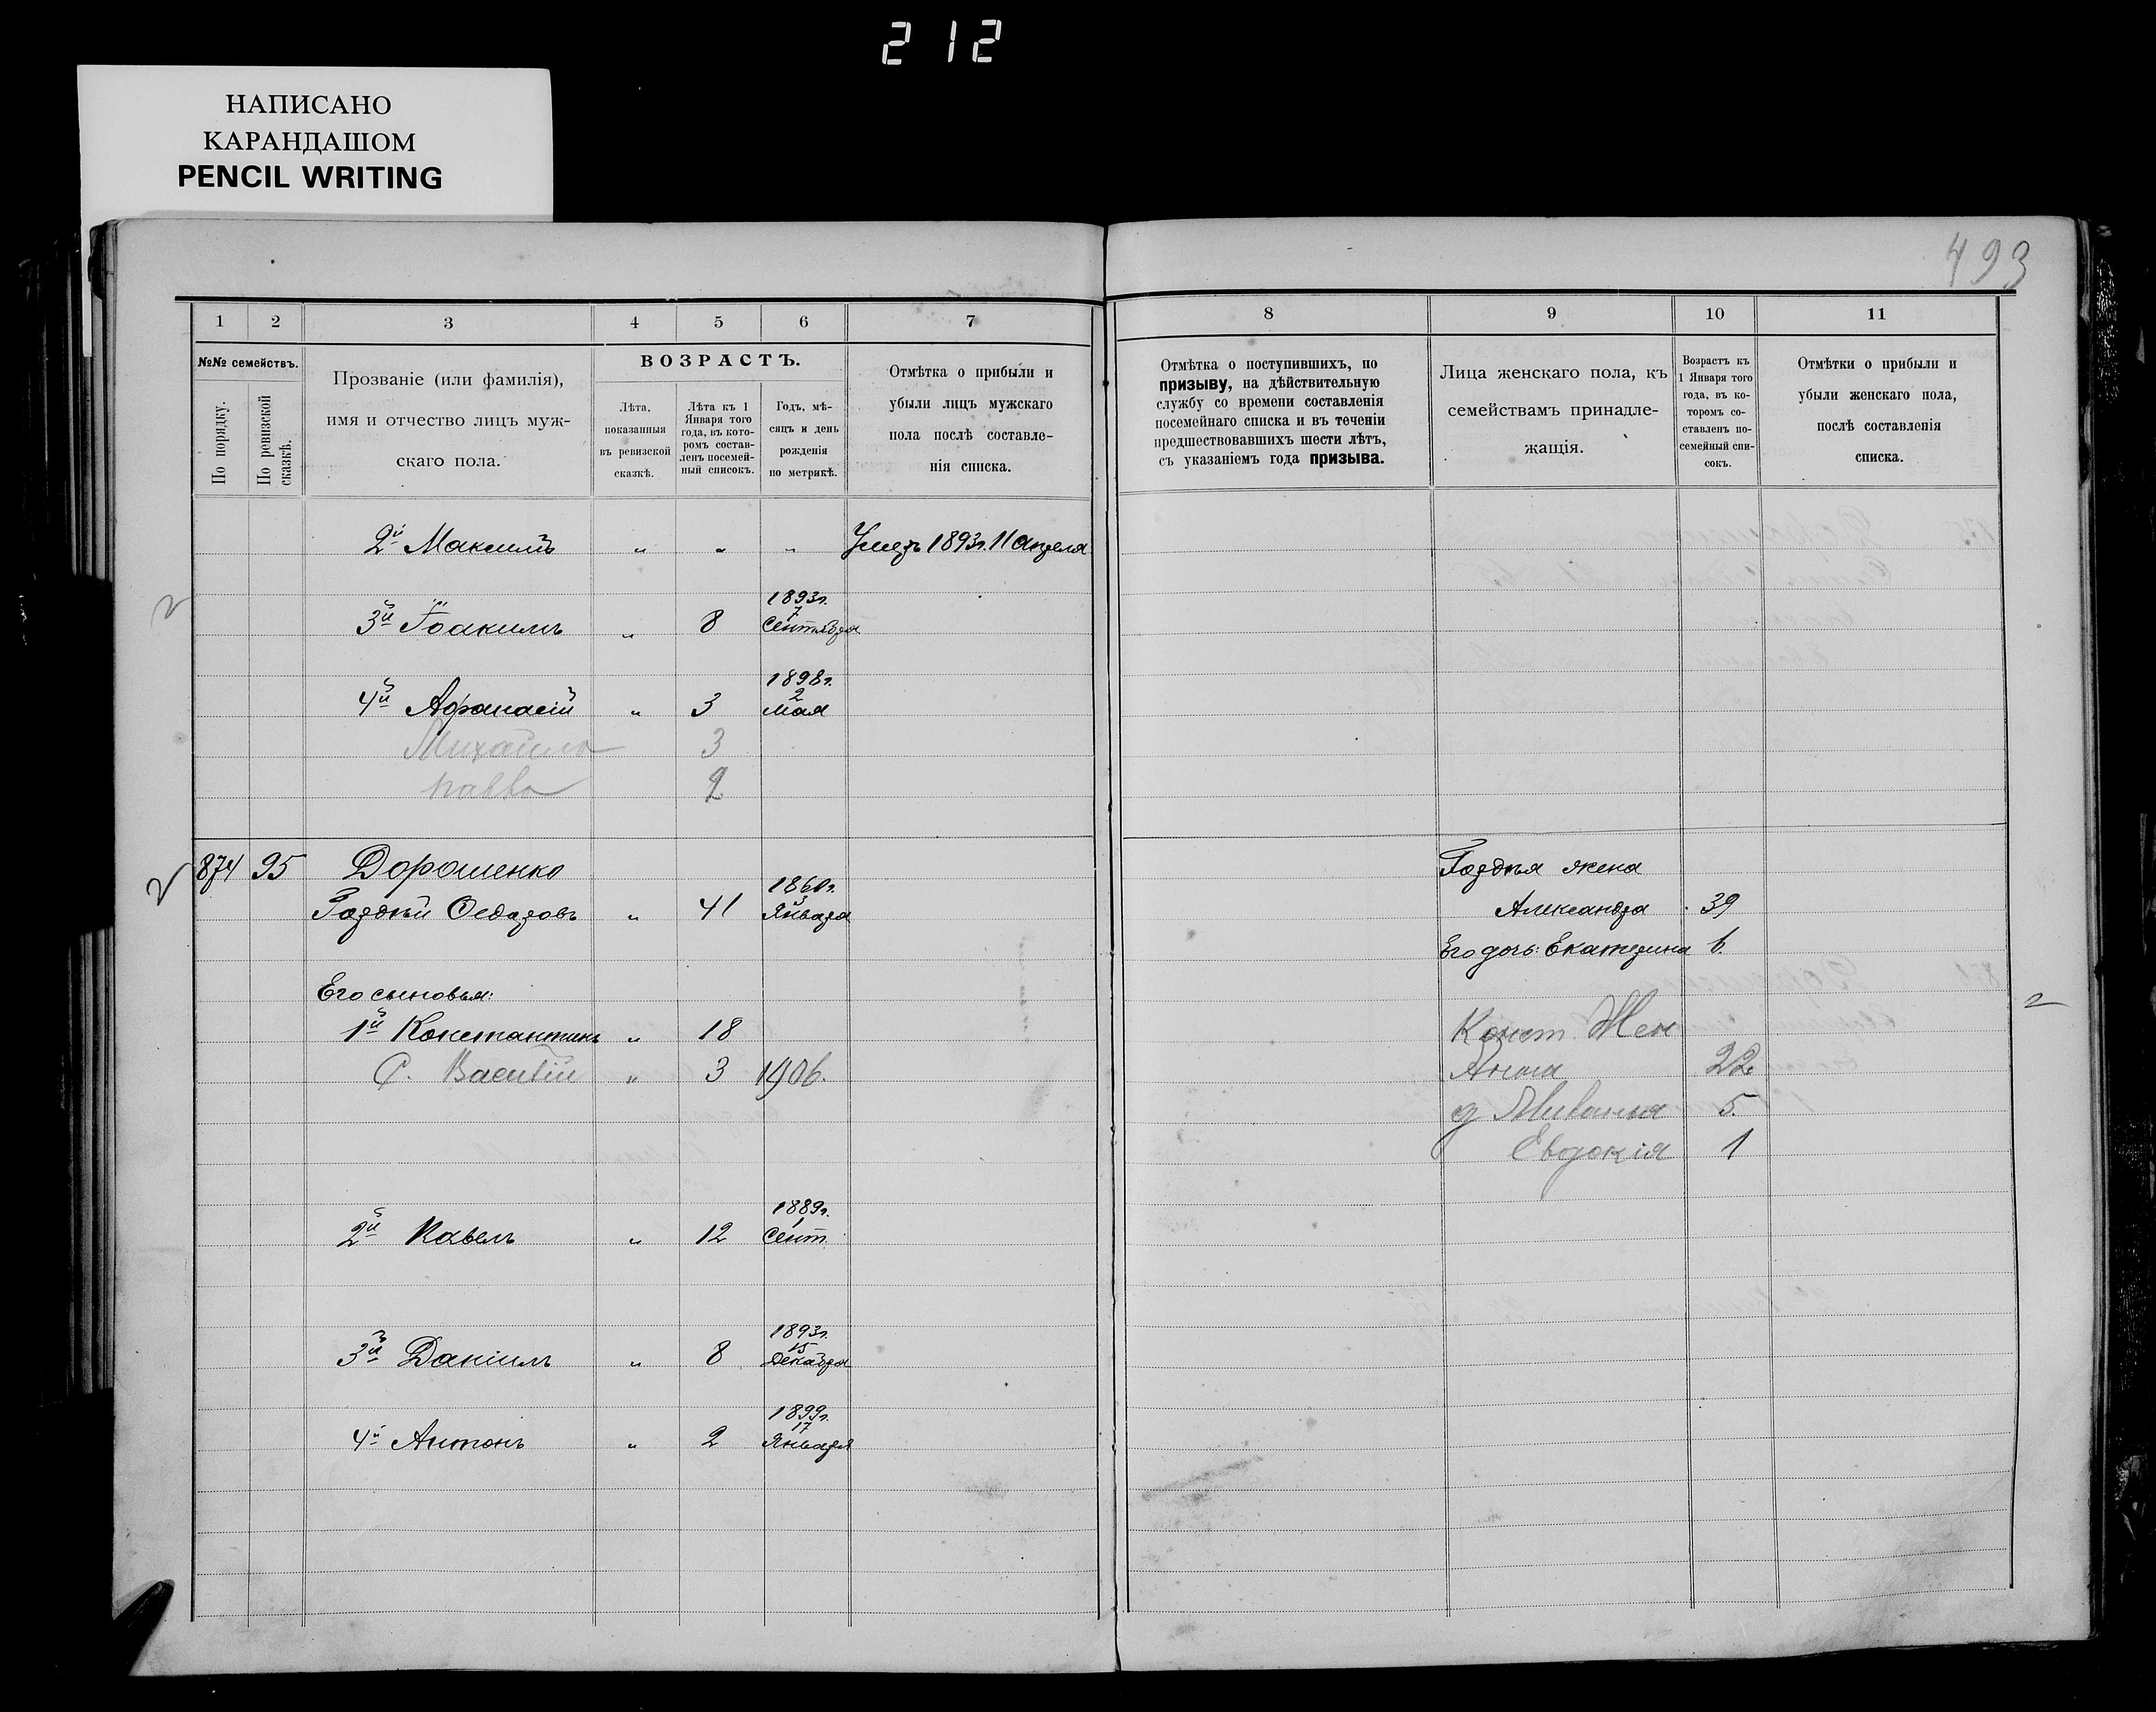 212
НАПИСАНО
КАРАНДАШОМ
PENCIL WRITING
493
1 2 3 4 5 6 7
№№ семействъ.
По порядку.
По ревизской сказкѣ.
Прозваніе (или фамилія),
имя и отчество лицъ муж-
скаго пола.
ВОЗРАСТЪ.
Лѣта,
показанныя
въ ревизской
сказкѣ.
Лѣта къ 1
Января того
года, въ кото-
ромъ состав-
ленъ посемей-
ный списокъ.
Годъ, мѣ-
сяцъ и день
рожденія
по метрикѣ.
Отмѣтка о прибыли и
убыли лицъ мужскаго
пола послѣ составле-
нія списка.
8 9 10 11
Отмѣтка о поступившихъ, по
призыву, на дѣйствительную
службу со времени составленія
посемейнаго списка и въ теченіи
предшествовавшихъ шести лѣтъ,
съ указаніемъ года призыва.
Лица женскаго пола, къ
семействамъ принадле-
жащія.
Возрастъ къ
1 Января того
года, въ ко-
торомъ со-
ставленъ по-
семейный спи-
сокъ.
Отмѣтки о прибыли и
убыли женскаго пола,
послѣ составленія
списка.
2й Максимъ " " " Умеръ 1893г. 11 апреля
3й Іоакимъ " 8 1893г. 7 Сентября
4й Афанасій " 3 1898г. 2 Мая
Михайло 3
Павло 2
874 95 Дорошенко
Гордѣй Федоровъ " 41 1860г. 3 Января
Его сыновья:
1й Константинъ " 18
С. Василій " 3 1906.
2й Павелъ " 12 1889г. 1 Сент.
3й Даніилъ " 8 1893г. 15 Декабря
4й Антонъ " 2 1899г. 17 Января
Гордѣя жена
Александра 39
Его дочь: Екатерина 6.
Конст. Жен
Анна 22
д 5.
Евдокія 1